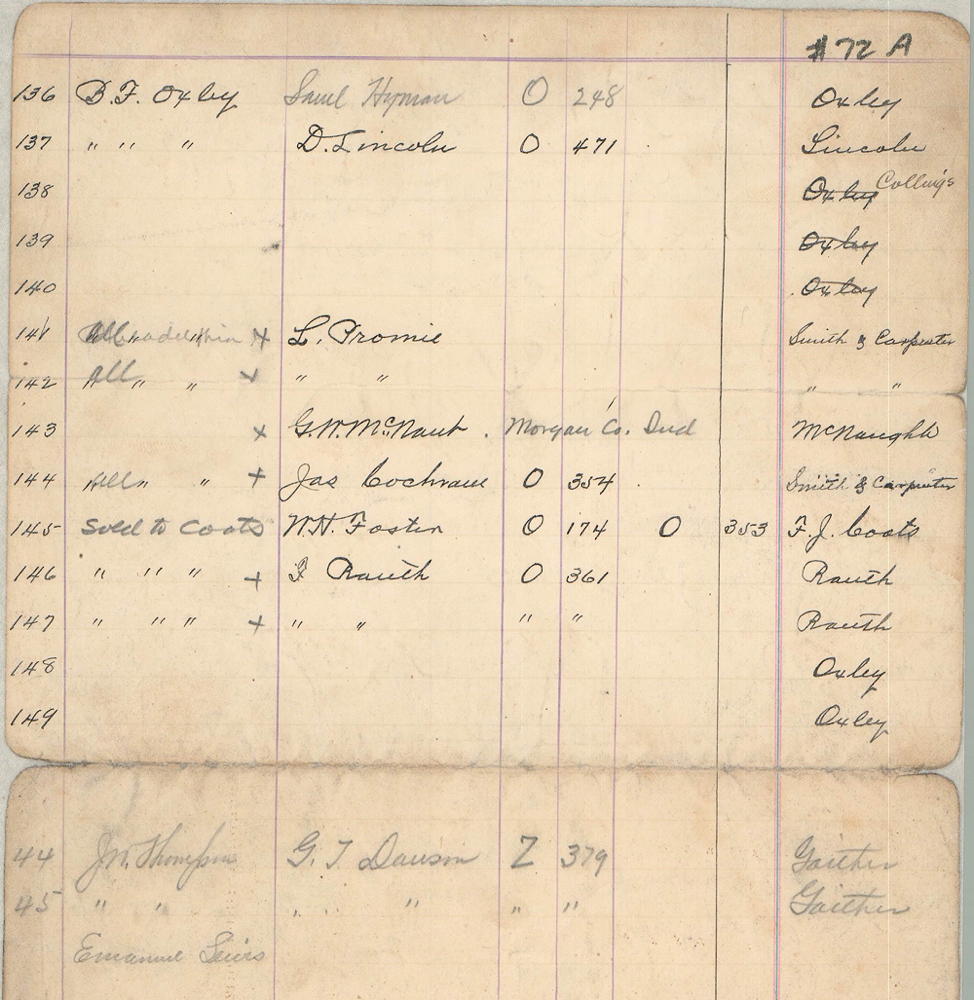 # 72 A
136 B. F. Oxley Saml Hyman O 248 Oxley
137 " " " D. Lincoln O 471 Lincoln
138 Oxley Collings
139 Oxley
140 Oxley
141 " " X L. Promie Smith & Carpenter
142 All " " X " " " "
143 X G. W. McNaut. Morgan Co. Ind McNaught
144 All " " X Jas Cochrane O 354 Smith & Carpenter
145 Sold to Coats W. H. Foster O 174 O 353 F. J. Coats
146 " " " " X Rauth O 361 Rauth
147 " " " X " " " " Rauth
148 Oxley
149 Oxley
44 Jno. Thompson G. T. Dawson Z 379 Gaither
45 " " " " " " Gaither
Emanuel Leivis